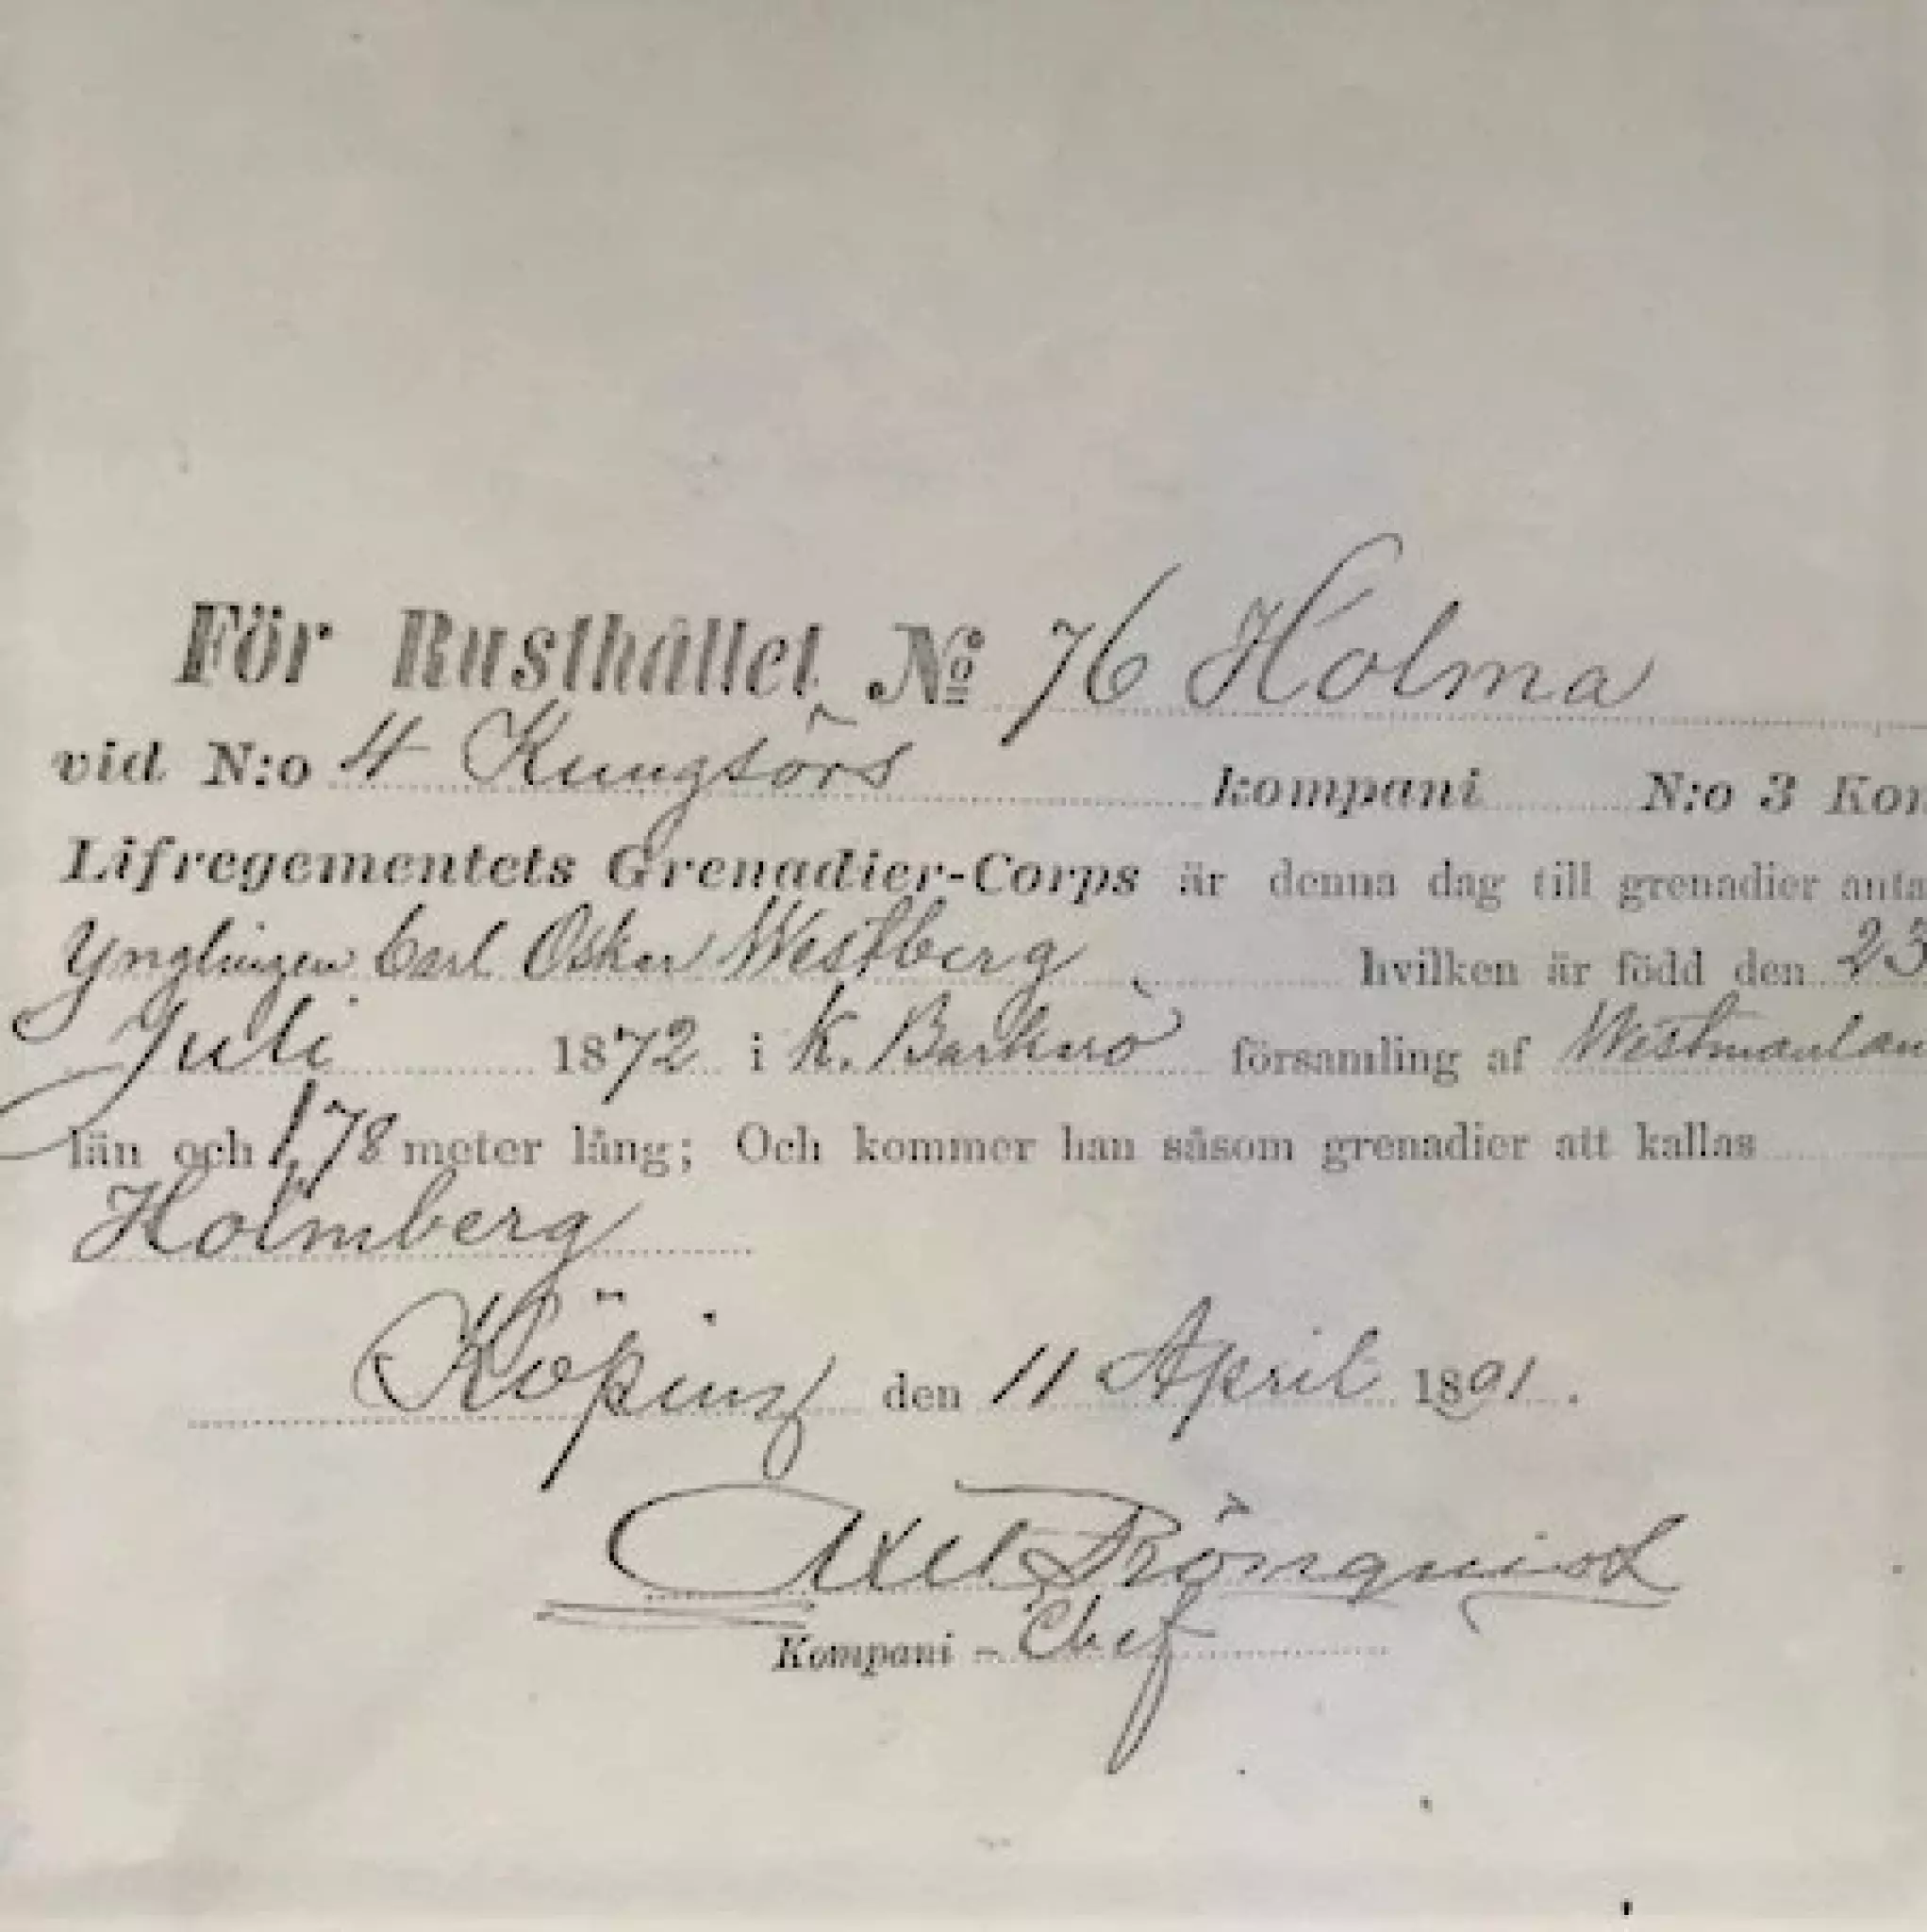 För Rusthållet No 76 Holma
vid N:o 4 Kungsörs kompani N:o 3 Kom
Lifregementets Grenadier-Corps är denna dag till grenadier anta
Ynglingen Carl Oskar Westberg hvilken är född den 23
Juli 1872 i K. Barkarö församling af Westmanlan
län och 1,78 meter lång; Och kommer han såsom grenadier att kallas
Holmberg
Köping den 11 April 1891.
Axel
Kompani - Chef